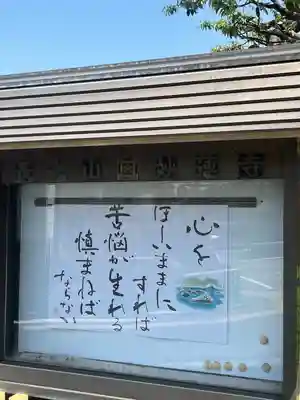 山 妙蓮寺
心を
ほしいままに
すれば
苦悩が生れる
慎まねば
ならない